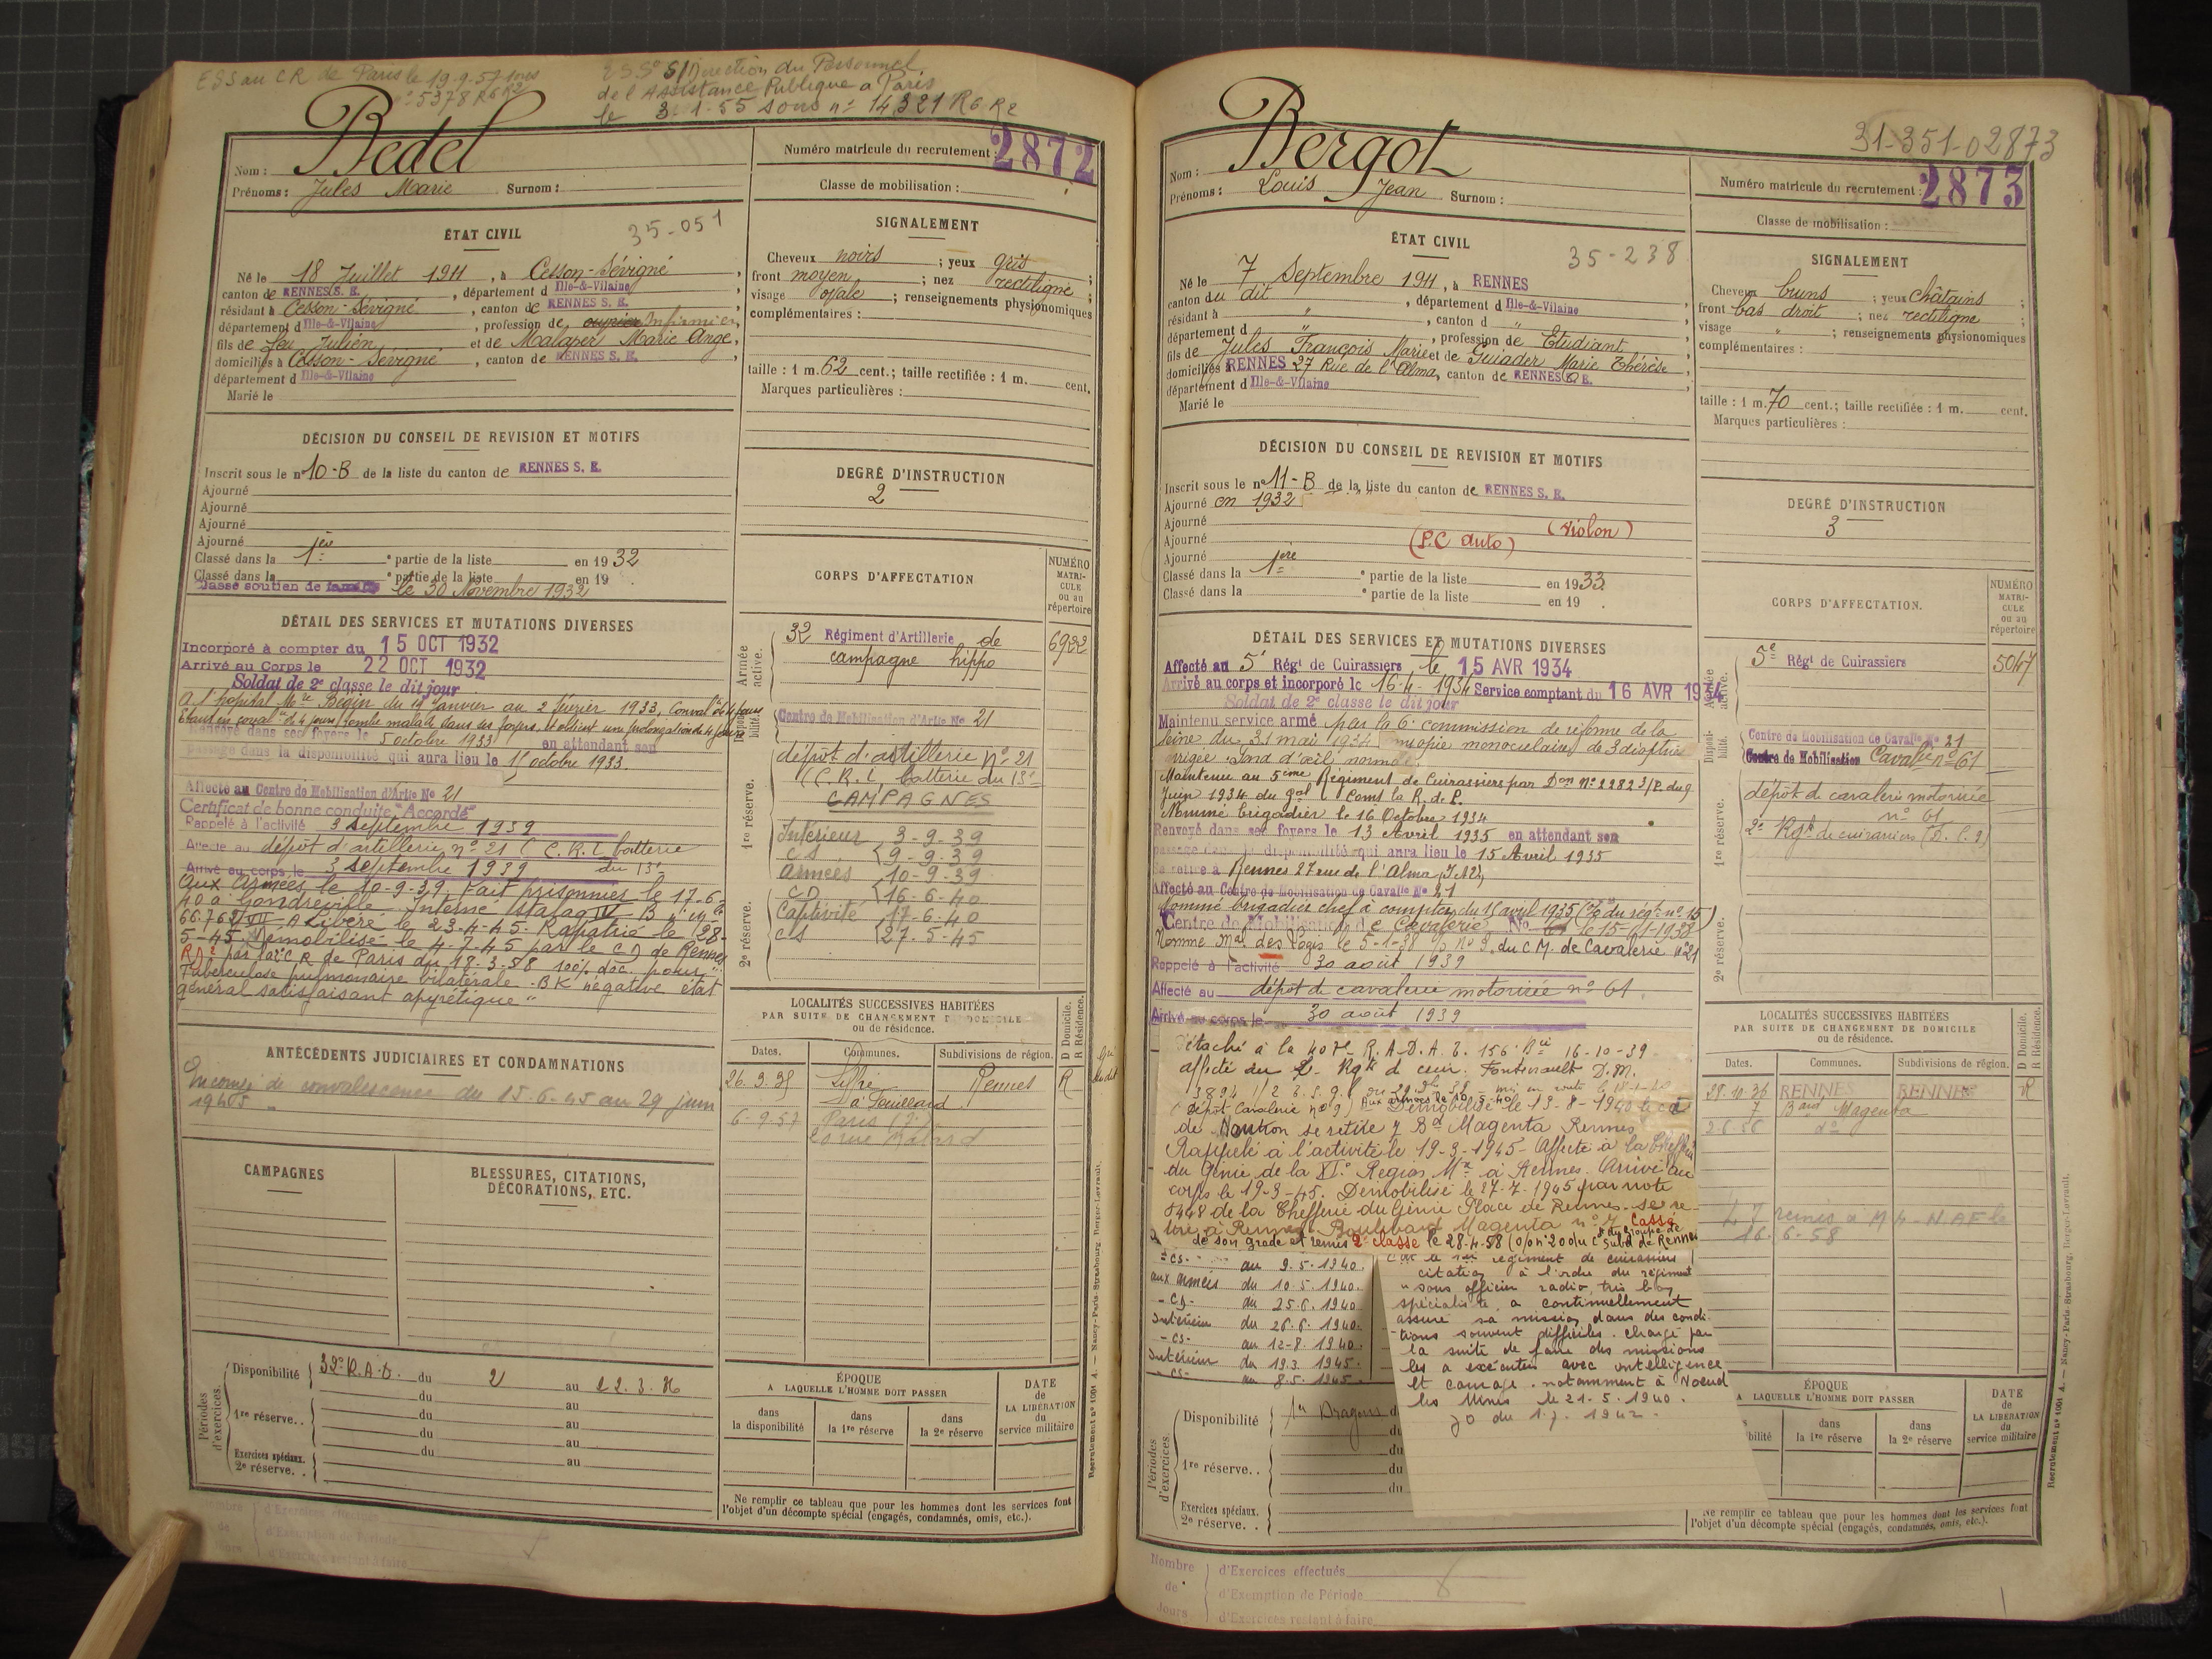 ESS au CR de Paris le 19.9.57
n° 5378 R6R2
S/Direction du Personnel
de l'Assistance Publique à Paris
le 3-1-55 sous n° 14321 R6 R2
Nom : Bedel
Prénoms : Jules Marie Surnom :
Numéro matricule du recrutement : 2872
Classe de mobilisation :
ÉTAT CIVIL
35-051
Né le 18 Juillet 1911, à Cesson-Sévigné,
canton de RENNES S. E., département d Ille-&-Vilaine
résidant à Cesson-Sévigné, canton de RENNES S. E.
département d Ille-&-Vilaine, profession de ouvrier Infirmier,
fils de feu Julien et de Malaper Marie Ange,
domiciliés à Cesson-Sévigné, canton de RENNES S. E.
département d Ille-&-Vilaine
Marié le
SIGNALEMENT
Cheveux noirs ; yeux gris ;
front moyen ; nez rectiligne ;
visage ovale ; renseignements physionomiques
complémentaires :
taille : 1 m. 62 cent.; taille rectifiée : 1 m. cent.
Marques particulières :
DÉCISION DU CONSEIL DE REVISION ET MOTIFS
Inscrit sous le n° 10-B de la liste du canton de RENNES S. E.
Ajourné
Ajourné
Ajourné
Ajourné
Classé dans la 1ère partie de la liste en 1932
Classé dans la partie de la liste en 19 .
Classé soutien de famille le 30 Novembre 1932
DEGRÉ D'INSTRUCTION
2
DÉTAIL DES SERVICES ET MUTATIONS DIVERSES
Incorporé à compter du 15 OCT 1932
Arrivé au Corps le 22 OCT 1932
Soldat de 2e classe le dit jour
A l'hôpital Mre Bégin du 14 Janvier au 2 février 1933, Conval ce de 4 jours
Etant en conval ce de 4 jours, tombe malade dans ses foyers, et obtient une prolongation de 4 jours
Renvoyé dans ses foyers le 5 octobre 1933 en attendant son
passage dans la disponibilité qui aura lieu le 15 octobre 1933.
Affecté au Centre de Mobilisation d'Artie No 21
Certificat de bonne conduite "Accordé"
Rappelé à l'activité 3 septembre 1939
Affecté au dépôt d'artillerie n° 21 (C.R.I. batterie
Arrivé au corps le 3 septembre 1939 du 13e
Aux Armées le 10-9-39. Fait prisonnier le 17-6-
40 à Gondreville. Interné stalag IV B
66.762 VII-A Libéré le 23-4-45. Rapatrié le 28-
5-45. Démobilisé le 4-7-45 par le CD de Rennes
RD2 par la CR de Paris du 18-3-58 100% déc. pour
Tuberculose pulmonaire bilatérale - BK négative état
général satisfaisant apyrétique"
CORPS D'AFFECTATION
NUMÉRO MATRICULE ou au répertoire
Armée active.
32 Régiment d'Artillerie de
campagne hippo
6922
Disponibilité.
Centre de Mobilisation d'Artie No 21
1re réserve.
dépôt d'artillerie n° 21
(C.R.I. batterie du 13e
CAMPAGNES
Intérieur 3-9-39
CS 9-9-39
Armées 10-9-39
CD 16-6-40
2e réserve.
Captivité 17-6-40
CS 27-5-45
ANTÉCÉDENTS JUDICIAIRES ET CONDAMNATIONS
En congé de convalescence du 15-6-45 au 29 juin
1945
CAMPAGNES
BLESSURES, CITATIONS, DÉCORATIONS, ETC.
LOCALITÉS SUCCESSIVES HABITÉES
PAR SUITE DE CHANGEMENT DE DOMICILE
ou de résidence.
D Domicile. R Résidence.
Dates. Communes. Subdivisions de région.
26.3.35 Liffré Rennes R
6-9-57 Paris
Périodes d'exercices.
Disponibilité 32e R.A.D. du 2 au 22.3.36
du au
1re réserve.. du au
du au
Exercices spéciaux. 2e réserve.. du au
ÉPOQUE
A LAQUELLE L'HOMME DOIT PASSER
DATE de LA LIBÉRATION du service militaire
dans la disponibilité
dans la 1re réserve
dans la 2e réserve
Ne remplir ce tableau que pour les hommes dont les services font
l'objet d'un décompte spécial (engagés, condamnés, omis, etc.).
Nombre de Jours
d'Exercices effectués
d'Exemption de Période
d'Exercices restant à faire
Recrutement n° 1001 A. — Nancy-Paris-Strasbourg, Berger-Levrault.
31-351-02873
Nom : Bergot
Prénoms : Louis Jean Surnom :
Numéro matricule du recrutement : 2873
Classe de mobilisation :
ÉTAT CIVIL
35-238
Né le 7 Septembre 1911, à RENNES
canton du dit, département d Ille-&-Vilaine
résidant à ", canton d "
département d ", profession de Etudiant
fils de Jules François Marie et de Guiader Marie Thérèse
domiciliés à RENNES 27 Rue de l'Alma, canton de RENNES S. E.
département d Ille-&-Vilaine
Marié le
SIGNALEMENT
Cheveux bruns ; yeux châtains ;
front bas droit ; nez rectiligne ;
visage " ; renseignements physionomiques
complémentaires :
taille : 1 m. 70 cent.; taille rectifiée : 1 m. cent.
Marques particulières :
DÉCISION DU CONSEIL DE REVISION ET MOTIFS
Inscrit sous le n° 11-B de la liste du canton de RENNES S. E.
Ajourné en 1932
Ajourné
Ajourné (P.C auto) (Violon)
Ajourné
Classé dans la 1ère partie de la liste en 1933
Classé dans la partie de la liste en 19 .
DEGRÉ D'INSTRUCTION
3
DÉTAIL DES SERVICES ET MUTATIONS DIVERSES
Affecté au 5e Régt de Cuirassiers le 15 AVR 1934
Arrivé au corps et incorporé le 16-4-1934 Service comptant du 16 AVR 1934
Soldat de 2e classe le dit jour
Maintenu service armé par la 6e commission de réforme de la
Seine du 31 mai 1934 myopie monoculaire de 3 dioptries
corrigée fond d'oeil normal
Maintenu au 5ème Régiment de Cuirassiers par Don N° 22823/P. du 9
Juin 1934 du Gal Comt la R. de P.
Nommé brigadier le 16 Octobre 1934
Renvoyé dans ses foyers le 13 Avril 1935 en attendant son
passage dans la disponibilité qui aura lieu le 15 Avril 1935
Se retire à Rennes 27 rue de l'Alma (I.&V.)
Affecté au Centre de Mobilisation de Cavalie No 21
Nommé brigadier chef à compter du 15 avril 1935 (O/ du régt n° 15)
Centre de Mobilisation de Cavalerie No le 15-01-1938
Nommé Mal des Logis le 5-1-38 O/ No 9 du C.M. de Cavalerie n° 21
Rappelé à l'activité 30 août 1939
Affecté au dépôt de cavalerie motorisée n° 61
Arrivé au corps le 30 août 1939
Détaché à la 407e R.A.D.A. 156e Bie 16-10-39
affecté au 2e Rgt de cuir. Fontevrault D.M.
(dépôt Cavalerie n° 9) Aux armées le 10-5-40 Démobilisé le 13-8-1940
de Nontron se retire 7 Bd Magenta Rennes
Rappelé à l'activité le 19-3-1945. Affecté à la Chefferie
du Génie de la XIe Région Mre à Rennes. Arrivé au
corps le 19-3-45. Démobilisé le 27.7.1945 par note
8448 de la Chefferie du Génie Place de Rennes. Se re-
tire à Rennes Boulevard Magenta n° 7. Cassé
de son grade et remis 2e classe le 28-4-58 (O/ n° 200 du Ct du groupe de Subd de Rennes
CORPS D'AFFECTATION.
NUMÉRO MATRICULE ou au répertoire
Armée active.
5e Régt de Cuirassiers
5047
Disponibilité.
Centre de Mobilisation de Cavalie No 21
Centre de Mobilisation Cavalie n° 61
1re réserve.
dépôt de cavalerie motorisée
n° 61
2e Rgt de cuirassiers (D.C.9)
2e réserve.
- CS - au 9.5.1940.
aux armées du 10.5.1940.
- CD - du 25.6.1940
Intérieur du 26.6.1940.
- CS - au 12-8.1940.
Intérieur du 19.3.1945.
- CS - au 8.5.1945.
régiment de cuirassiers
citation à l'ordre du régiment
"sous officier radio, très bon
spécialiste, a continuellement
assuré sa mission dans des condi-
tions souvent difficiles. chargé par
la suite de faire des missions
les a exécutées avec intelligence
et courage. notamment à Noeud
les Mines le 21.5.1940.
JO du 1.7.1942.
LOCALITÉS SUCCESSIVES HABITÉES
PAR SUITE DE CHANGEMENT DE DOMICILE
ou de résidence.
D Domicile. R Résidence.
Dates. Communes. Subdivisions de région.
29.10.36 RENNES RENNES R
7 Bard Magenta
do
16.6-58
Périodes d'exercices.
Disponibilité 1er Dragons d
du
1re réserve.. du
du
Exercices spéciaux. 2e réserve..
ÉPOQUE
A LAQUELLE L'HOMME DOIT PASSER
DATE de LA LIBÉRATION du service militaire
dans la 1re réserve
dans la 2e réserve
Ne remplir ce tableau que pour les hommes dont les services font
l'objet d'un décompte spécial (engagés, condamnés, omis, etc.).
Nombre de Jours
d'Exercices effectués
d'Exemption de Période
d'Exercices restant à faire
Recrutement n° 1001 A. — Nancy-Paris-Strasbourg, Berger-Levrault.